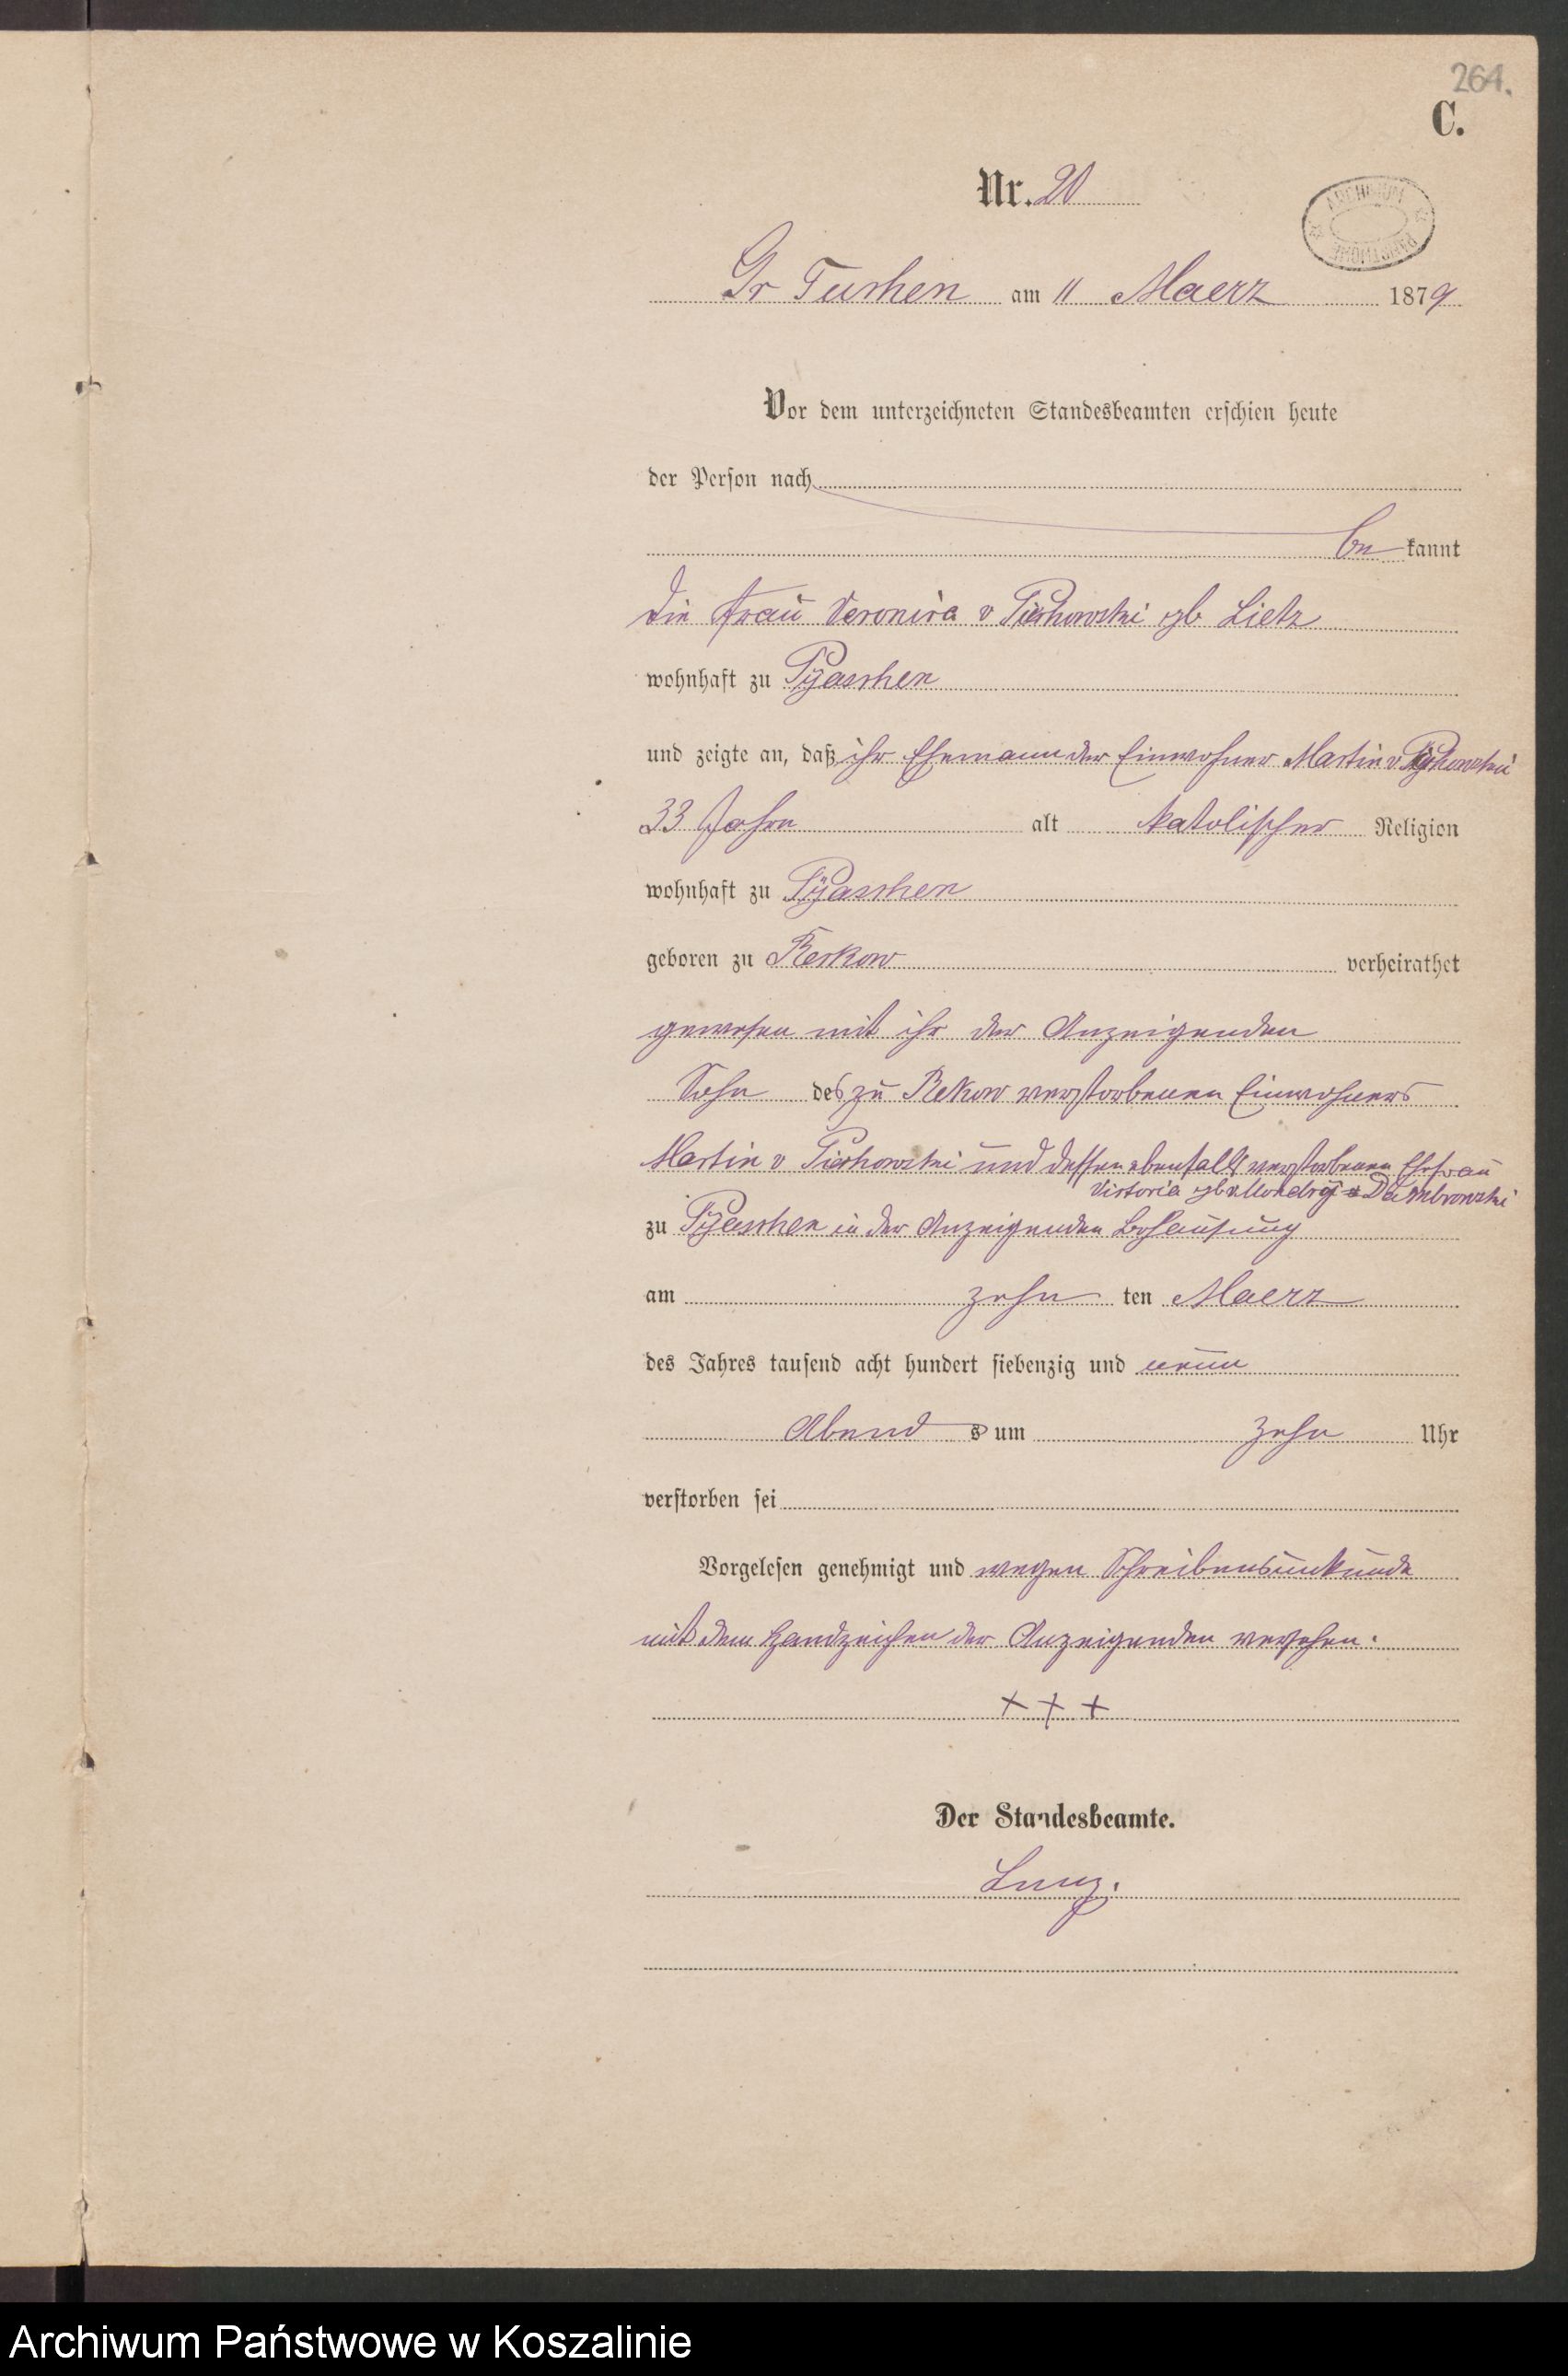 264.
C.
Nr. 20
ARCHIWUM PAŃSTWOWE
Gr Tuchen am 11 Maerz 1879
Vor dem unterzeichneten Standesbeamten erschien heute
der Person nach
be kannt
die Frau Veronica v Piechowski gb Lietz
wohnhaft zu Pyaschen
und zeigte an, daß ihr Ehemann der Einwohner Martin v Piechowski
33 Jahre alt katolischer Religion
wohnhaft zu Pyaschen
geboren zu Reckow verheirathet
gewesen mit ihr der Anzeigenden
Sohn des zu Rekow verstorbenen Einwohners
Martin v Piechowski und dessen ebenfalls verstorbenen Ehefrau
Victoria gb v Dambrowski
zu Pyaschen in der Anzeigenden Behausung
am zehn ten Maerz
des Jahres tausend acht hundert siebenzig und neun
Abend s um zehn Uhr
verstorben sei
Vorgelesen genehmigt und wegen Schreibensunkunde
mit dem Handzeichen der Anzeigenden versehen.
+ + +
Der Standesbeamte.
Archiwum Państwowe w Koszalinie